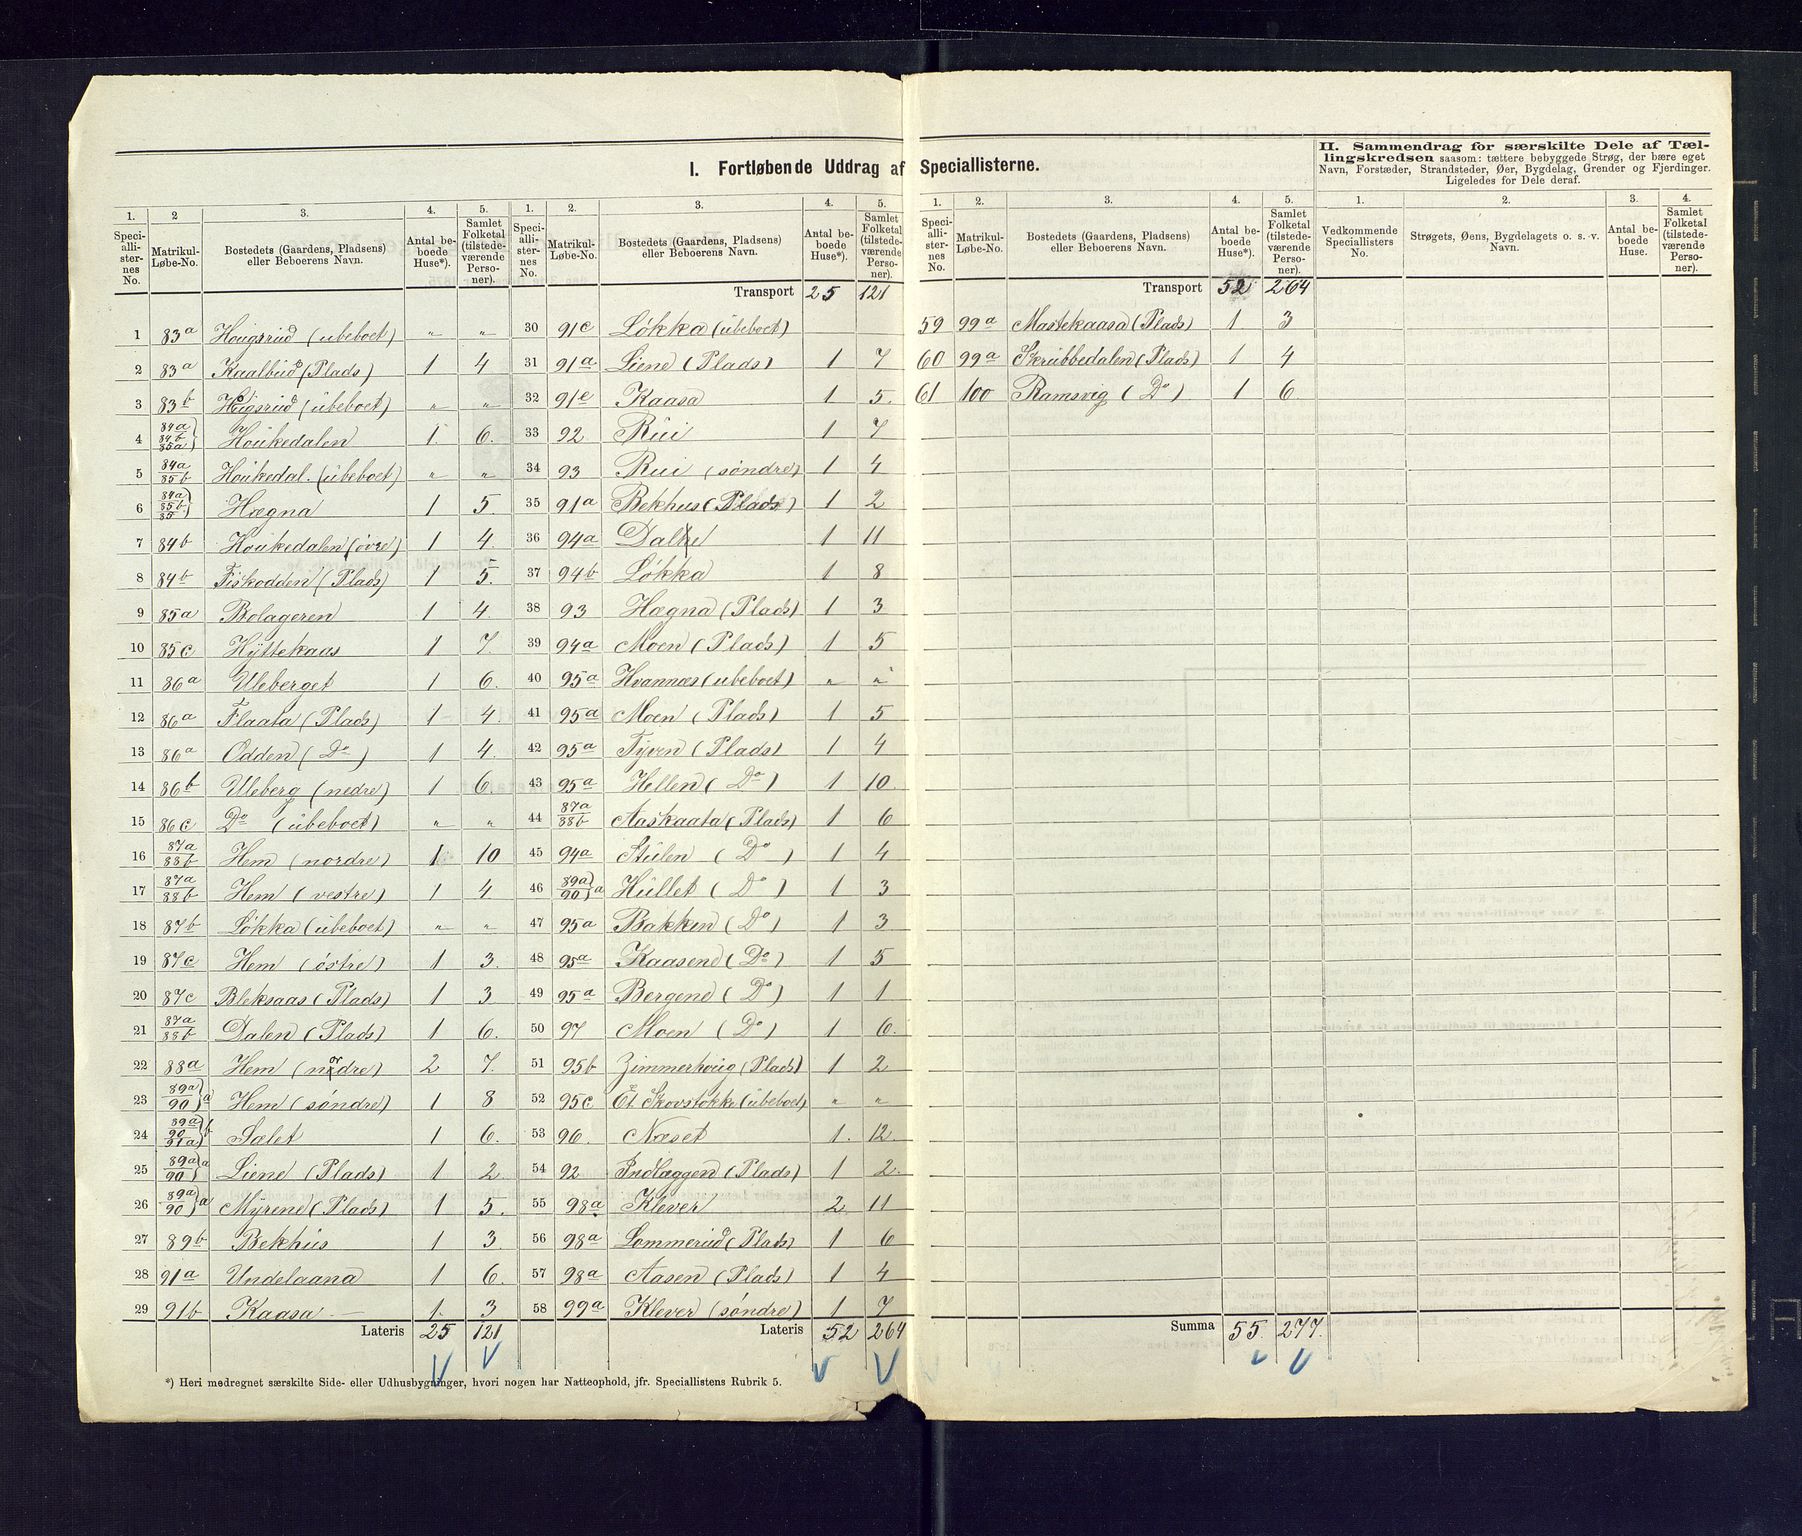 I. Fortløbende Uddrag af Speciallisterne.
II. Sammendrag for særskilte Dele af Tæl-
lingskredsen saasom: tættere bebyggede Strøg, der bære eget
Navn, Forstæder, Strandsteder, Øer, Bygdelag, Grender og Fjerdinger.
Ligeledes for Dele deraf.
1. 2 3. 4. 5. 1. 2. 3. 4. 5. 1. 2. 3. 4. 5. 1. 2. 3. 4.
Speci-alli-ster-nes No. Matrikul-Løbe-No. Bostedets (Gaardens, Pladsens) eller Beboerens Navn. Antal be-boede Huse*). Samlet Folketal (tilstede-værende Perso-ner).
Speci-alli-ster-nes No. Matrikul-Løbe-No. Bostedets (Gaardens, Pladsens) eller Beboerens Navn. Antal be-boede Huse*). Samlet Folketal (tilstede-værende Perso-ner).
Speci-alli-ster-nes No. Matrikul-Løbe-No. Bostedets (Gaardens, Pladsens) eller Beboerens Navn. Antal be-boede Huse*). Samlet Folketal (tilstede-værende Perso-ner).
Vedkommende Speciallisters No. Strøgets, Øens, Bygdelagets o. s. v. Navn. Antal be-boede Huse. Samlet Folketal (tilstede-værende Perso-ner).
1 83a Hougsrud (ubeboet) " "
2 83a Kaalbud (Plads) 1 4
3 83b Hougsrud (ubeboet) " "
4 84a 84b 85a Houkedalen 1. 6.
5 84a 85b Houkedal. (ubeboet) " "
6 84a 85b 85 Hægna 1 5.
7 84b Houkedalen (øvre) 1 4.
8 84b Fiskodden (Plads) 1 5.
9 85a Bolageren 1 4.
10 85c Hyttekaas 1 7.
11 86a Uleberget 1 6.
12 86a Flaata (Plads) 1 4.
13 86a Odden (Do) 1 4.
14 86b Uleberg (nedre) 1 6.
15 86c Do (ubeboet) " "
16 87a 88b Hem (nordre) 1 10
17 87a 88b Hem (vestre) 1 4.
18 87b Løkka (ubeboet) " "
19 87c Hem (østre) 1 3.
20 87c Bleksaas (Plads) 1 3
21 87a 88b Dalen (Plads) 1 6.
22 88a Hem (nordre) 2 7.
23 89a 90 a Hem (søndre) 1 8
24 89a 90 91a b Sælet 1 6.
25 89a 90 a Liene (Plads) 1 2.
26 89a 90 a Myrene (Plads) 1 5.
27 89b Bekhus 1 3.
28 91a Undelaana 1 6.
29 91b Kaasa 1. 3
Lateris 25 121
Transport 25 121
30 91c Løkka (ubeboet)
31 91a Liene (Plads) 1 7
32 91e Kaasa 1 5.
33 92 Rui 1 7
34 93 Rui (søndre) 1 4
35 91a Bekhus (Plads) 1 2
36 94a Dalne 1 11
37 94b Løkka 1 8
38 93 Hægna (Plads) 1 3
39 94a Moen (Plads) 1 5
40 95a Hvannæs (ubeboet) " "
41 95a Moen (Plads) 1 5
42 95a Tyven (Plads) 1 4
43 95a Hellen (Do) 1 10
44 87a 88b Aaskaata (Plads) 1 6
45 94a Stulen (Do) 1 4
46 89a 90 a Hullet (Do) 1 3
47 95a Bakken (Do) 1 3
48 95a Kaasene (Do) 1 5
49 95a Bergene (Do) 1 1
50 97 Moen (Do) 1 6.
51 95b Zimmerhoug (Plads) 1 2
52 95c Et Skovstøkke (ubeboet) " "
53 96. Næset 1. 12.
54 92 Indlæggen (Plads) 1 2.
55 98a Klever 2. 11
56 98a Lommerud (Plads) 1 6
57 98a Aasen (Plads) 1 4
58 99a Klever (søndre) 1 7
Lateris 52 264
Transport 52 264
59 99a Mastekaasa (Plads) 1 3
60 99a Skrubbedalen (Plads) 1 4
61 100 Ramsvig (Do) 1 6
Summa 55. 277.
*) Heri medregnet særskilte Side- eller Udhusbygninger, hvori nogen har Natteophold, jfr. Speciallistens Rubrik 5.